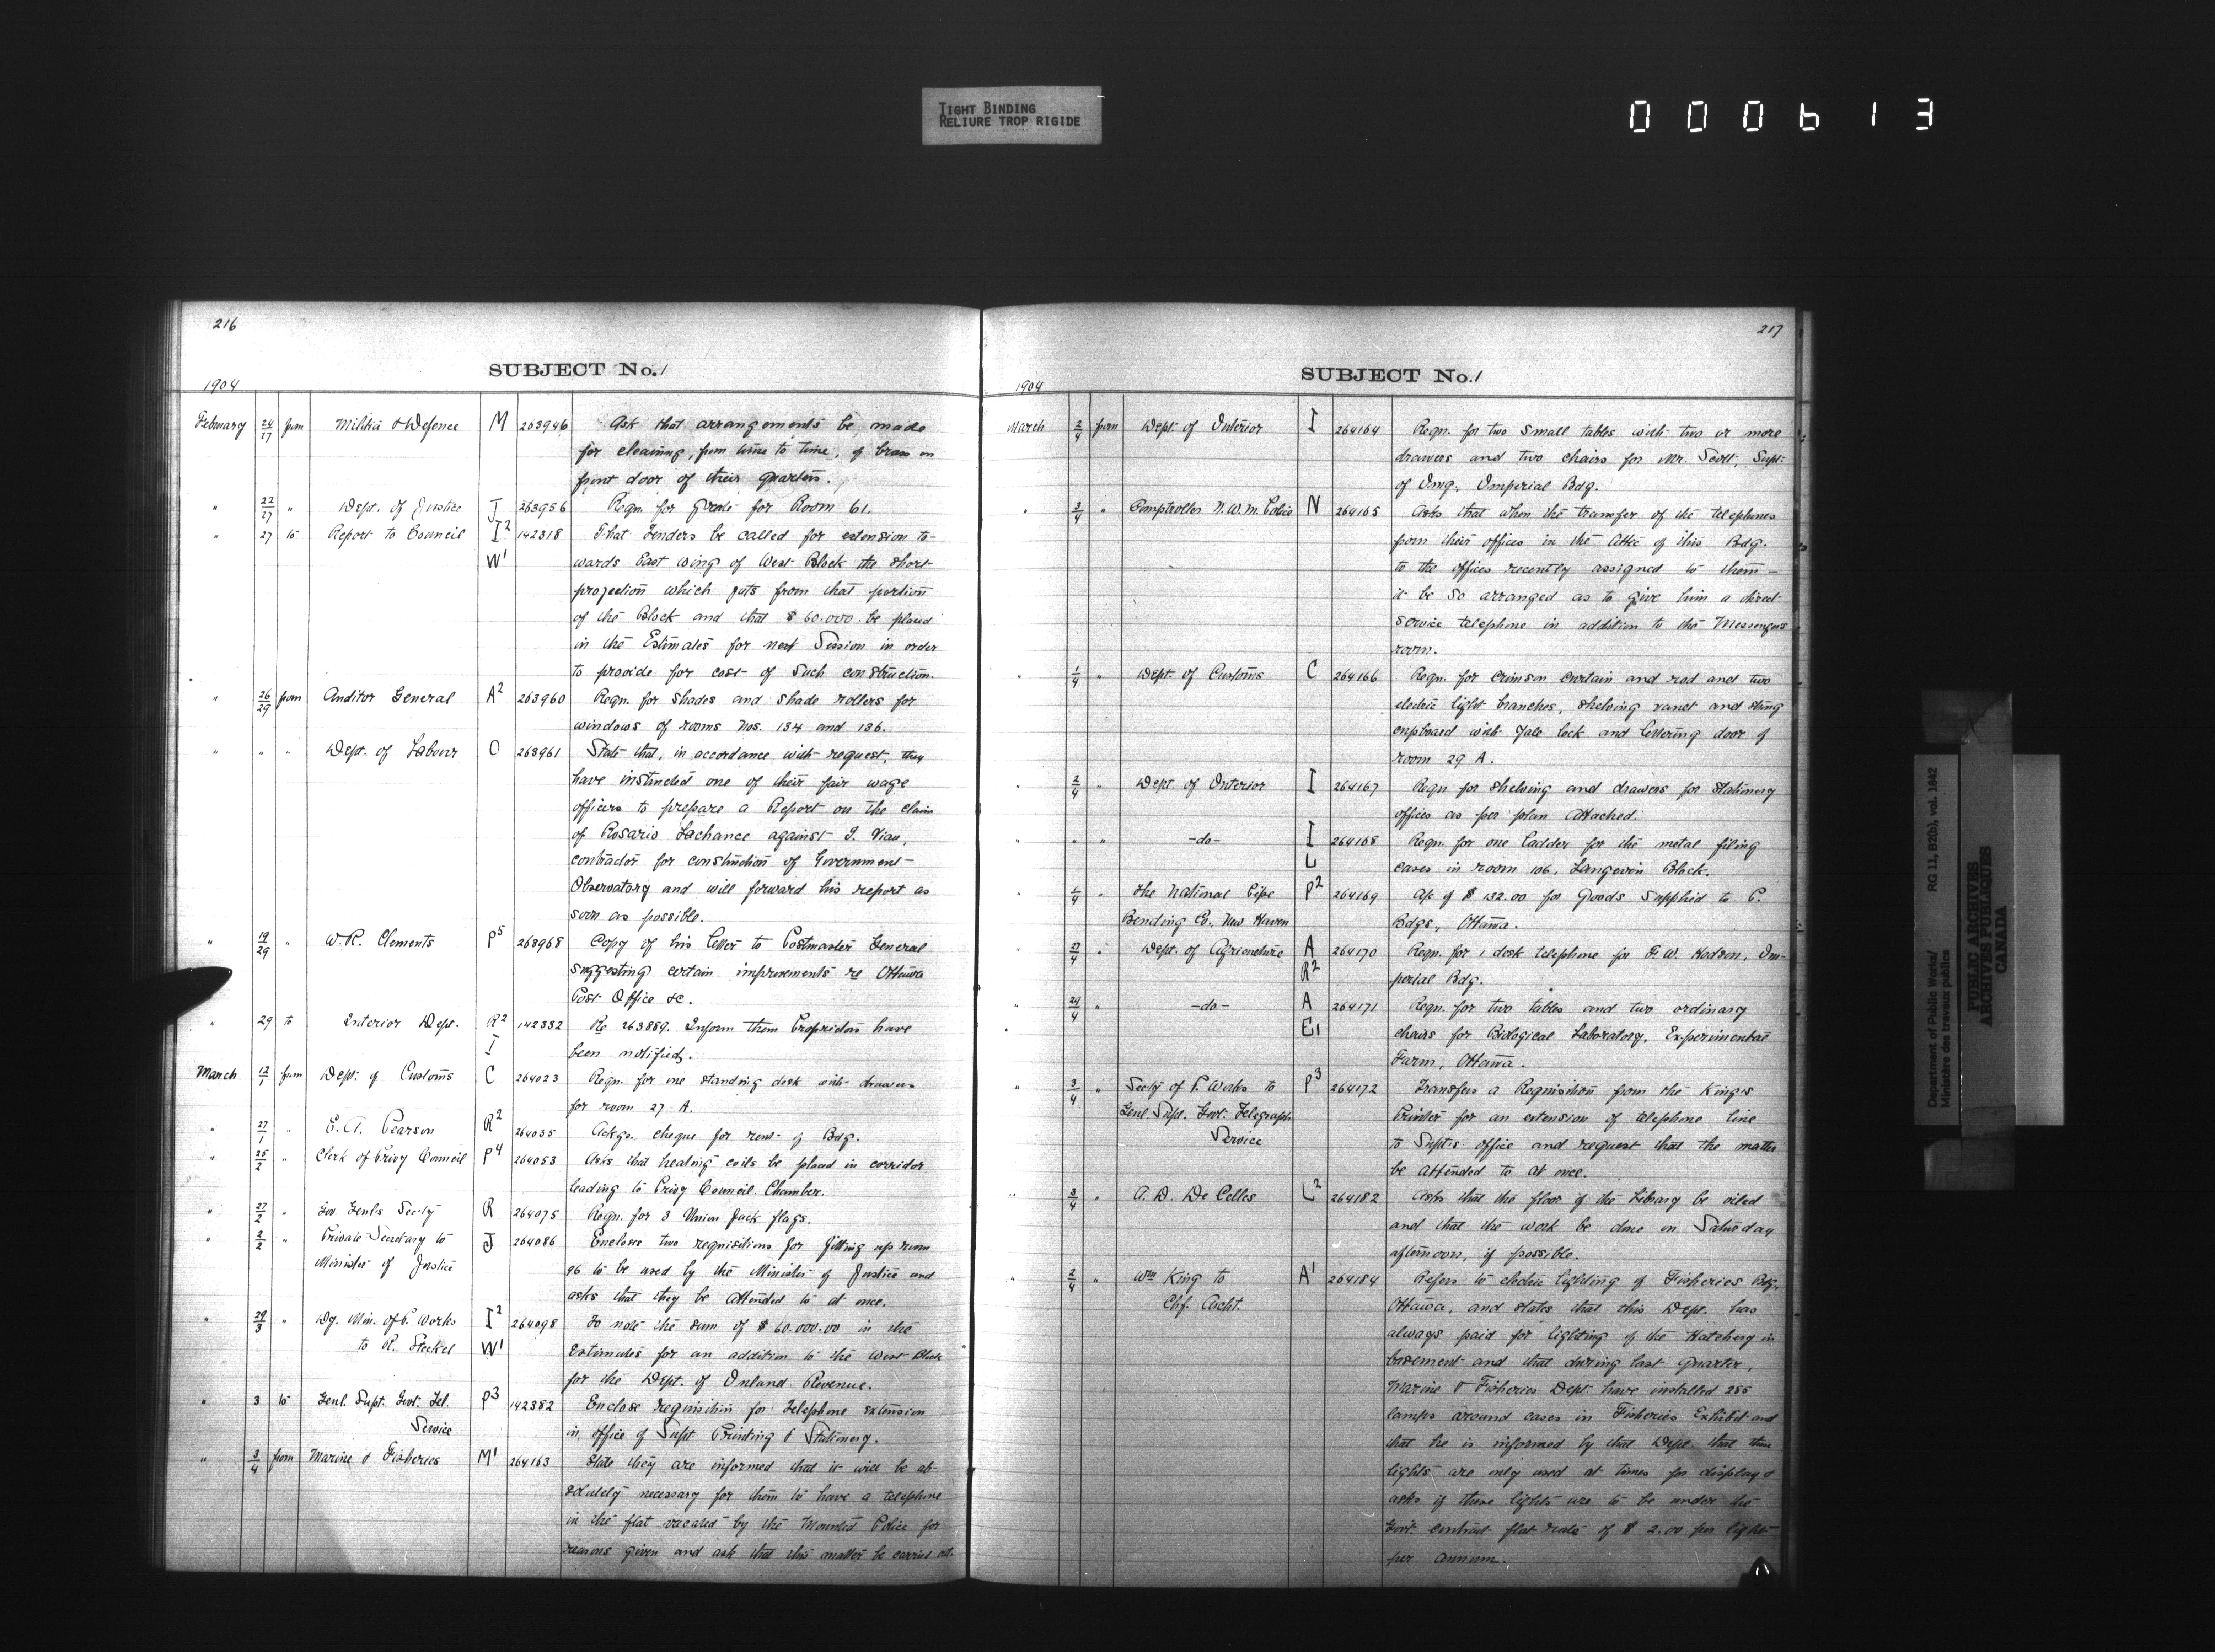 TIGHT BINDING
RELIURE TROP RIGIDE
000613
216
SUBJECT No. 1
1904
February 24/27 from Militia & Defence M 263946 Ask that arrangements be made
for cleaning, from time to time, of brass on
front door of their quarters.
" 22/27 " Dept. of Justice J 263956 Reqn. for grate for Room 61.
" 27 to Report to Council I2 142318 That Tenders be called for extension to-
W1 wards East wing of West Block the short
projection which juts from that portion
of the Block and that $60.000 be placed
in the Estimates for next Session in order
to provide for cost of such construction.
" 26/29 from Auditor General A2 263960 Reqn. for shades and shade rollers for
windows of rooms Nos. 134 and 136.
" " " Dept. of Labour O 263961 State that, in accordance with request, they
have instructed one of their fair wage
officers to prepare a Report on the claim
of Rosario Lachance against T. Viau,
contractor for construction of Government
Observatory and will forward his report as
soon as possible.
" 19/29 " W. R. Clements P5 263968 Copy of his letter to Postmaster General
suggesting certain improvements re Ottawa
Post Office &c.
" 29 to Interior Dept. R2 142332 Re 263889. Inform them Proprietors have
I been notified.
March 12/1 from Dept. of Customs C 264023 Reqn. for one standing desk with drawers
for room 27 A.
" 27/1 " E. A. Pearson R2 264035 Ackgs. cheque for rent of Bdg.
" 25/2 " Clerk of Privy Council P4 264053 Asks that heating coils be placed in corridor
leading to Privy Council Chamber.
" 27/2 " Gov. Genl's Sec'ty R 264075 Reqn. for 3 Union Jack flags.
" 2/2 " Private Secretary to J 264086 Encloses two requisitions for fitting up room
Minister of Justice 96 to be used by the Minister of Justice and
asks that they be attended to at once.
" 29/3 " Dy. Min. of P. Works I2 264098 To note the sum of $60.000.00 in the
to R. Steckel W1 Estimates for an addition to the West Block
for the Dept. of Inland Revenue.
" 3 to Genl. Supt. Govt. Tel. P3 142382 Enclose requisition for Telephone extension
Service in office of Supt. Printing & Stationery.
" 3/4 from Marine & Fisheries M1 264163 State they are informed that it will be ab-
solutely necessary for them to have a telephone
in the flat vacated by the Mounted Police for
reasons given and ask that this matter be carried out.
217
SUBJECT No. 1
1904
March 2/4 from Dept. of Interior I 264164 Reqn. for two small tables with two or more
drawers and two chairs for Mr. Scott, Supt.
of Img. Imperial Bdg.
" 3/4 " Comptroller N.W.M. Police N 264165 Asks that when the transfer of the telephones
from their offices in the Attic of this Bdg.
to the offices recently assigned to them—
it be so arranged as to give him a direct
service telephone in addition to the Messengers
room.
" 1/4 " Dept. of Customs C 264166 Reqn. for crimson curtain and rod and two
electric light branches, shelving vault and fitting
cupboard with Yale lock and lettering door of
room 29 A.
" 2/4 " Dept. of Interior I 264167 Reqn for shelving and drawers for Stationery
offices as per plan attached.
" " " -do- I 264168 Reqn. for one ladder for the metal filing
L cases in room 106, Langevin Block.
" 1/4 " The National Pipe P2 264169 A/c of $132.00 for Goods supplied to P.
Bending Co., New Haven Bdgs, Ottawa.
" 27/4 " Dept. of Agriculture A 264170 Reqn. for 1 desk telephone for F. W. Hodson, Im-
R2 perial Bdg.
" 24/4 " -do- A 264171 Reqn. for two tables and two ordinary
E1 chairs for Biological Laboratory, Experimental
Farm, Ottawa.
" 3/4 " Sec'ty of P. Works to P3 264172 Transfers a Requisition from the King's
Genl. Supt. Govt. Telegraph Printer for an extension of telephone line
Service to Supt's office and request that the matter
be attended to at once.
" 3/4 " A. D. De Celles L2 264182 Asks that the floor of the Library be oiled
and that the work be done on Saturday
afternoon, if possible.
" 2/4 " Wm King to A1 264184 Refers to electric lighting of Fisheries Bdg.
Chf. Archt. Ottawa, and states that this Dept. has
always paid for lighting of the Hatchery in
basement and that during last quarter,
Marine & Fisheries Dept. have installed 285
lamps around cases in Fisheries Exhibit and
that he is informed by that Dept. that these
lights are only used at times for display &
asks if these lights are to be under the
Govt. contract flat rate of $2.00 per light
per annum.
Department of Public Works/
Ministère des travaux publics
RG 11, B2(b), vol. 1842
PUBLIC ARCHIVES
ARCHIVES PUBLIQUES
CANADA